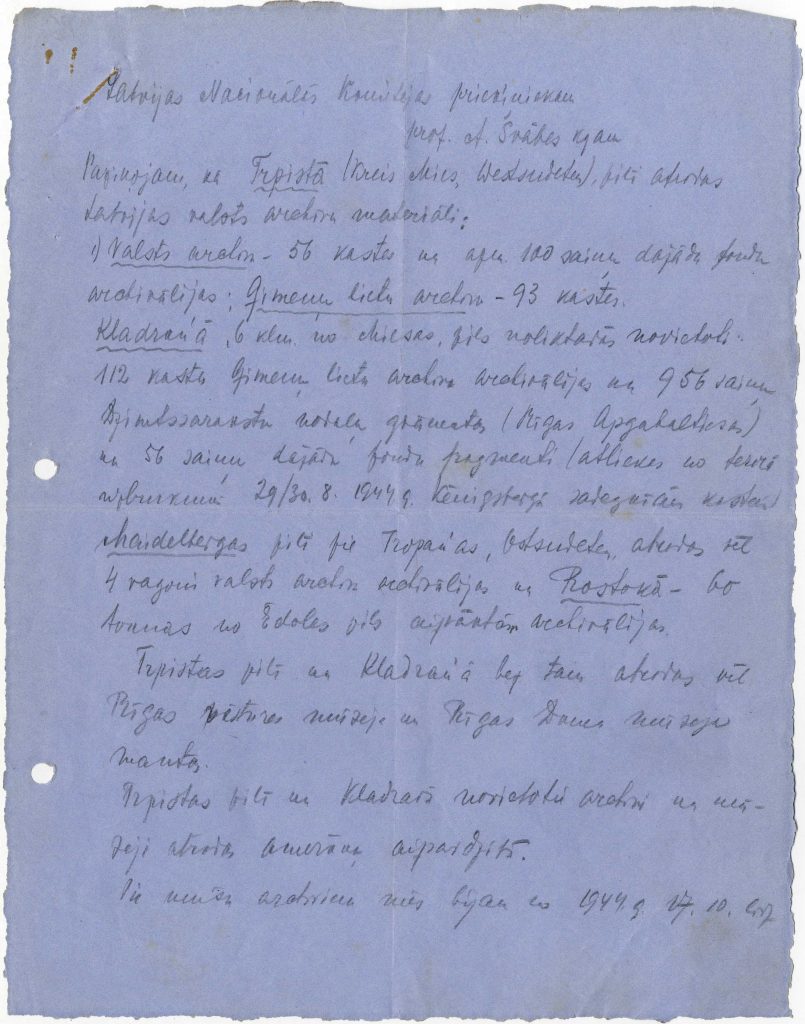 Latvijas Nacionālās Komitejas priekšniekam
prof. A. Švābes kgam
Paziņojam, ka Trpistā (Kreis Mies, Westsudeten), pilī atrodas
Latvijas valsts archivu materiāli:
1) Valsts archiv - 56 kastes un apm. 100 saiņu dažādu fondu
archivālijas; Ģimeņu lietu archiv - 93 kastes.
Kladrau'ā, 6 klm. no Miesas, pils noliktavās novietoti
112 kastes Ģimeņu lietu archiva archivālijas un 956 saiņu
Dzimtssarakstu nodaļu grāmatas (Rīgas Apgabaltiesas)
un 56 saiņu dažādu fondu fragmenti (atliekas no terora
uzbrukumā 29/30. 8. 1944 g. Kēnigsbergā sadegušām kastēm)
Maidelbergas pilī pie Tropau'as, Ostsudeten, atrodas vēl
4 vagoni valsts archiv archivālijas un Rostokā - 60
tonnas no Ēdoles pils aizvāktām archivālijas.
Trpistas pilī un Kladrau'ā bez tam atrodas vēl
Rīgas vēstures mūzeja un Rīgas Doma mūzeja
mantas.
Trpistas pilī un Kladrauā novietotie archivi un mū-
zeji atrodas amerikāņu aizsardzībā.
Pie mūsu archiviem mēs bijām no 1944. g. 17. 10. līdz